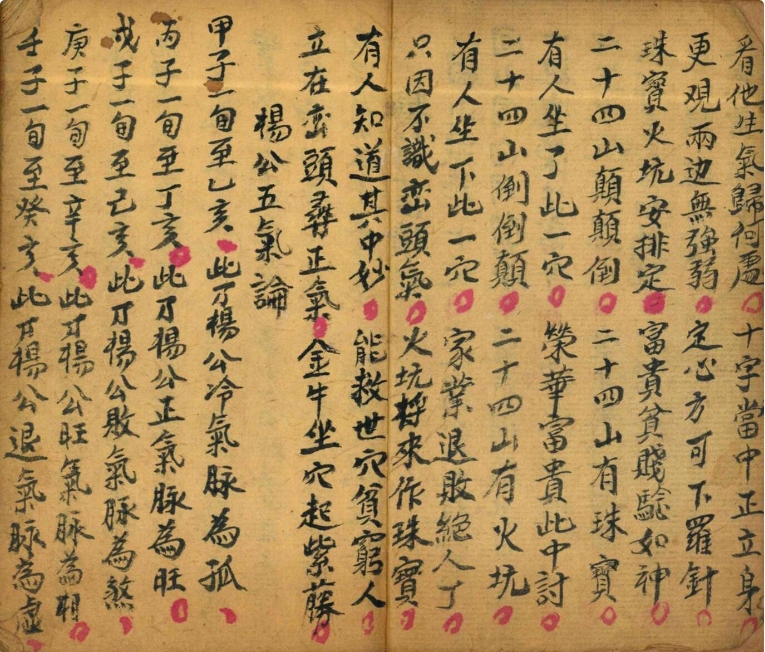 看他生氣歸何處 十字當中正立身
更观兩边無強弱 定心方可下羅針
珠寶火坑安排定 富貴貧賤驗如神
二十四山顛顛倒 二十四山有珠寶
有人坐了此一穴 榮華富貴此中討
二十四山倒倒顛 二十四山有火坑
有人坐下此一穴 家業退敗絕人了
只因不識巒頭氣 火坑將來作珠寶
有人知道其中妙 能救世穴貧窮人
立在巒頭尋正氣 金牛坐穴起紫藤
楊公五氣論
甲子一旬至乙亥 此乃楊公冷氣脉為孤
丙子一旬至丁亥 此乃楊公正氣脉為旺
戊子一旬至己亥 此乃楊公敗氣脉為煞
庚子一旬至辛亥 此乃楊公旺氣脉為相
壬子一旬至癸亥 此乃楊公退氣脉為虛